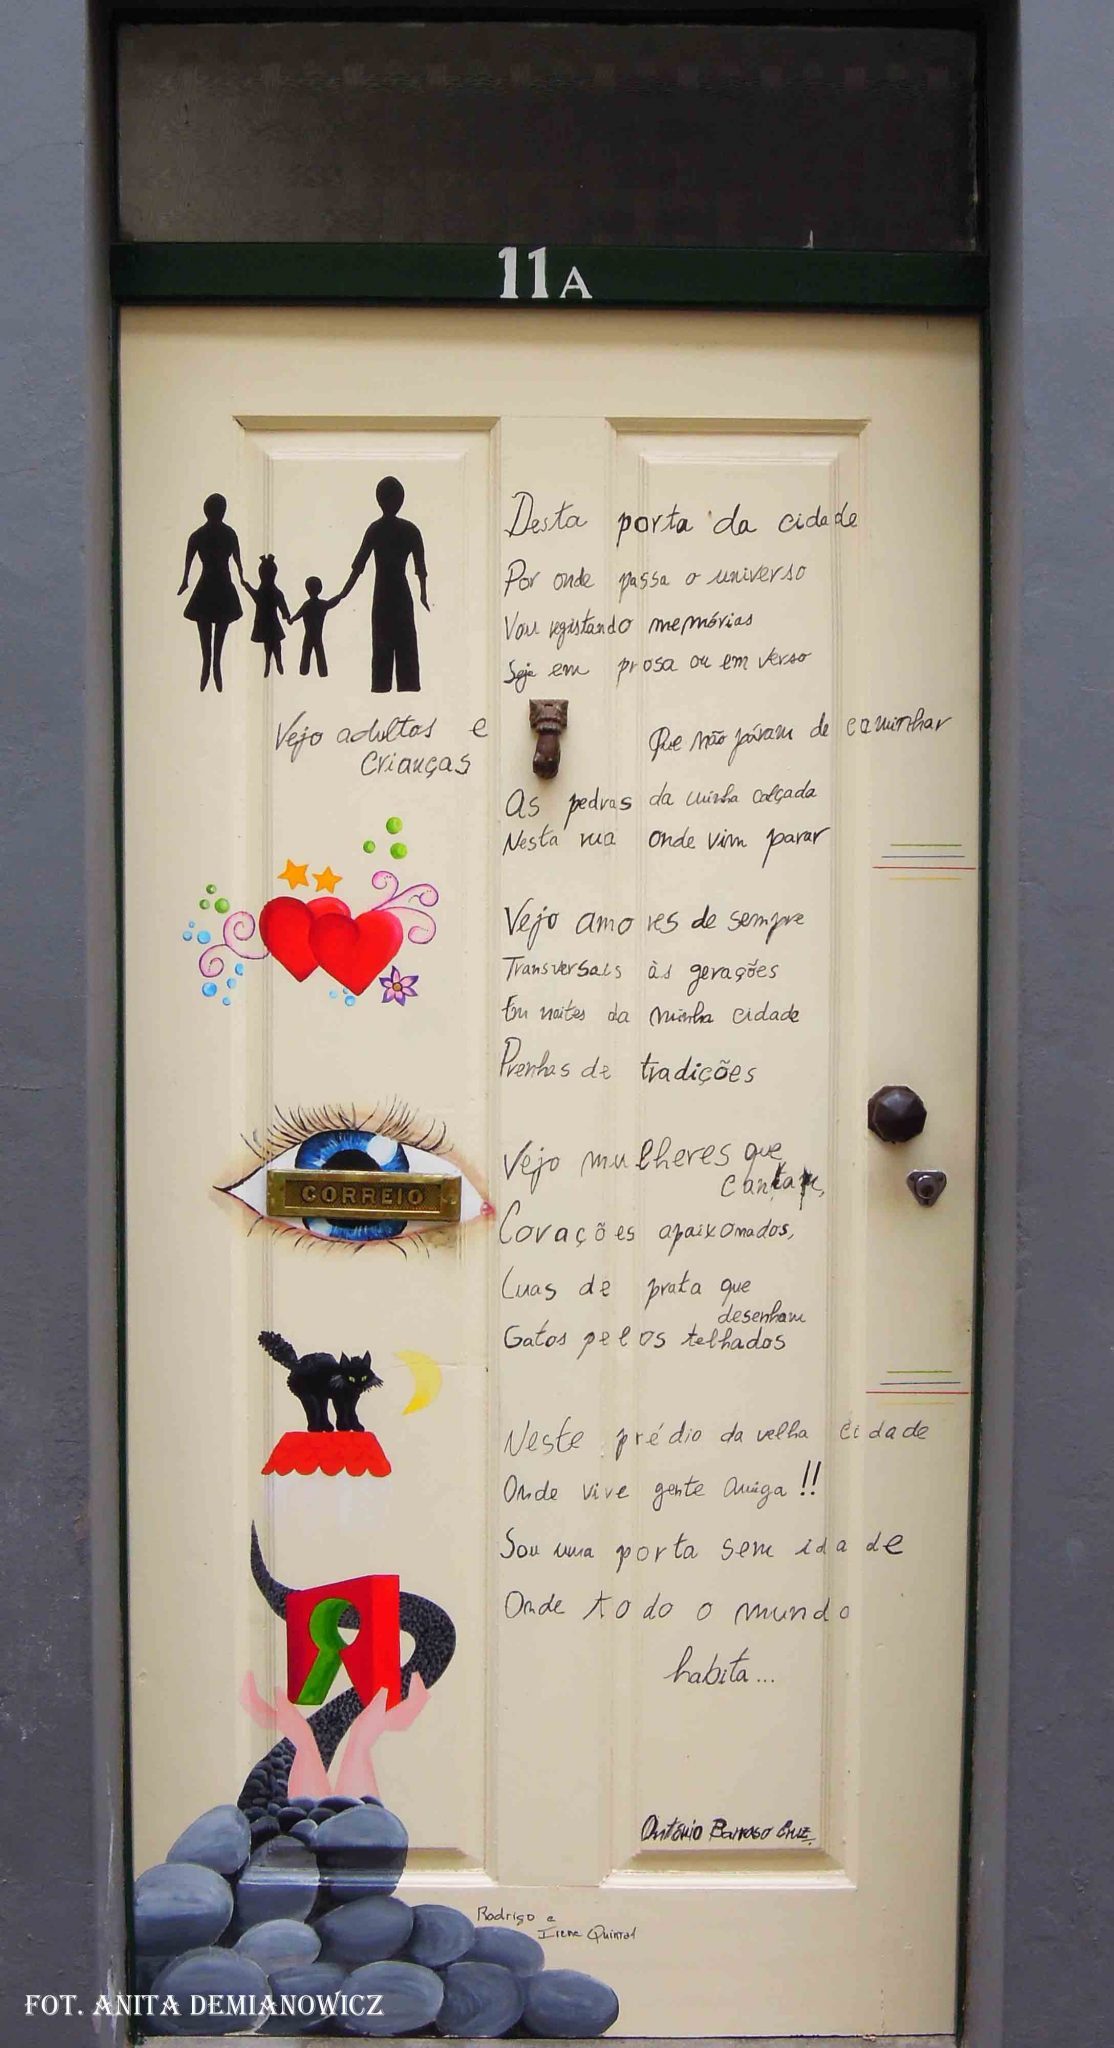 11A
Desta porta da cidade
Por onde passa o universo
Vou registando memórias
Seja em prosa ou em verso
Vejo adultos e
crianças
Que não páram de caminhar
As pedras da minha calçada
Nesta rua onde vim parar
Vejo amores de sempre
Transversais às gerações
Em noites da minha cidade
Prenhas de tradições
Vejo mulheres que
cantam,
Corações apaixonados,
Luas de prata que
desenham
Gatos pelos telhados
CORREIO
Neste prédio da velha cidade
Onde vive gente amiga!!
Sou uma porta sem idade
Onde todo o mundo
habita...
António Barroso Cruz
Rodrigo e
Irene Quintal
FOT. ANITA DEMIANOWICZ